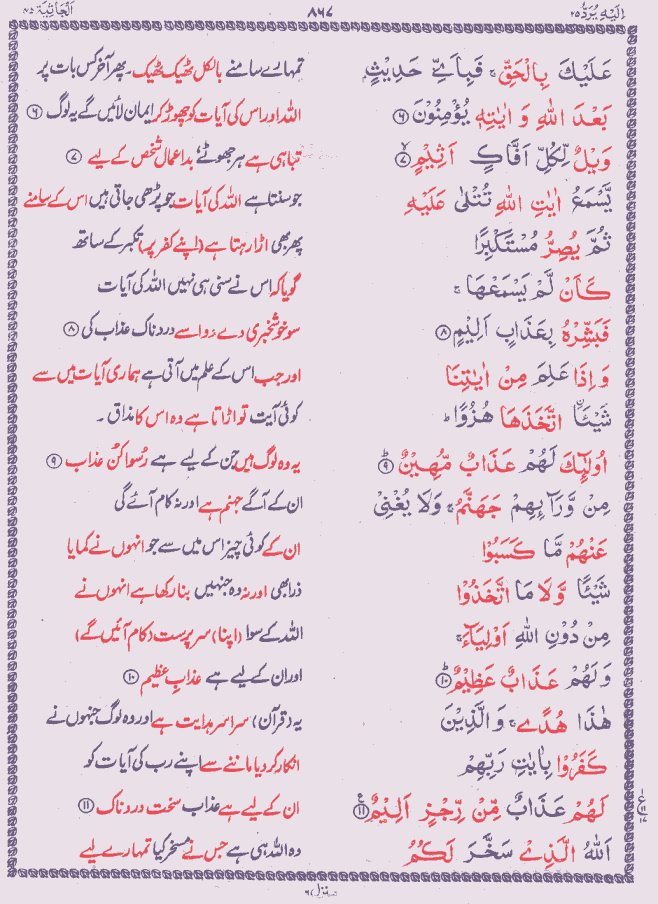 اِلَيْهِ يُرَدُّ ٢٥ ٨٦٧ اَلْجَاثِيَة ٤٥
عَلَيْكَ بِالْحَقِّ ۚ فَبِاَيِّ حَدِيْثٍۭ تمہارے سامنے بالکل ٹھیک ٹھیک۔ پھر آخر کس بات پر
بَعْدَ اللّٰهِ وَ اٰيٰتِهٖ يُؤْمِنُوْنَ ۶ اللہ اور اس کی آیات کو چھوڑ کر ایمان لائیں گے یہ لوگ ۶
وَيْلٌ لِّكُلِّ اَفَّاكٍ اَثِيْمٍ ۷ تباہی ہے ہر جھوٹے بداعمال شخص کے لیے ۷
يَّسْمَعُ اٰيٰتِ اللّٰهِ تُتْلٰى عَلَيْهِ جو سنتا ہے اللہ کی آیات جو پڑھی جاتی ہیں اس کے سامنے
ثُمَّ يُصِرُّ مُسْتَكْبِرًا پھر بھی اڑا رہتا ہے (اپنے کفر پر) تکبر کے ساتھ
كَاَنْ لَّمْ يَسْمَعْهَا ۚ گویا کہ اس نے سنی ہی نہیں اللہ کی آیات
فَبَشِّرْهُ بِعَذَابٍ اَلِيْمٍ ۸ سو خوشخبری دے دو اسے دردناک عذاب کی ۸
وَ اِذَا عَلِمَ مِنْ اٰيٰتِنَا اور جب اس کے علم میں آتی ہے ہماری آیات میں سے
شَيْـًٔا اتَّخَذَهَا هُزُوًا ؕ کوئی آیت تو اڑاتا ہے وہ اس کا مذاق ۔
اُولٰٓئِكَ لَهُمْ عَذَابٌ مُّهِيْنٌ ۹ یہ وہ لوگ ہیں جن کے لیے ہے رسوا کن عذاب ۹
مِنْ وَّرَآئِهِمْ جَهَنَّمُ ۚ وَلَا يُغْنِيْ ان کے آگے جہنم ہے اور نہ کام آئے گی
عَنْهُمْ مَّا كَسَبُوْا ان کے کوئی چیز اس میں سے جو انہوں نے کمایا
شَيْـًٔا وَّلَا مَا اتَّخَذُوْا ذرا بھی اور نہ وہ جنہیں بنا رکھا ہے انہوں نے
مِنْ دُوْنِ اللّٰهِ اَوْلِيَآءَ ۚ اللہ کے سوا (اپنا) سرپرست (کام آئیں گے)
وَلَهُمْ عَذَابٌ عَظِيْمٌ ۱۰ اور ان کے لیے ہے عذابِ عظیم ۱۰
هٰذَا هُدًى ۚ وَالَّذِيْنَ یہ (قرآن) سراسر ہدایت ہے اور وہ لوگ جنہوں نے
كَفَرُوْا بِاٰيٰتِ رَبِّهِمْ انکار کر دیا ماننے سے اپنے رب کی آیات کو
لَهُمْ عَذَابٌ مِّنْ رِّجْزٍ اَلِيْمٌ ۱۱ ان کے لیے ہے عذاب سخت دردناک ۱۱
اَللّٰهُ الَّذِيْ سَخَّرَ لَكُمُ وہ اللہ ہی ہے جس نے مسخر کیا تمہارے لیے
منزل ٦